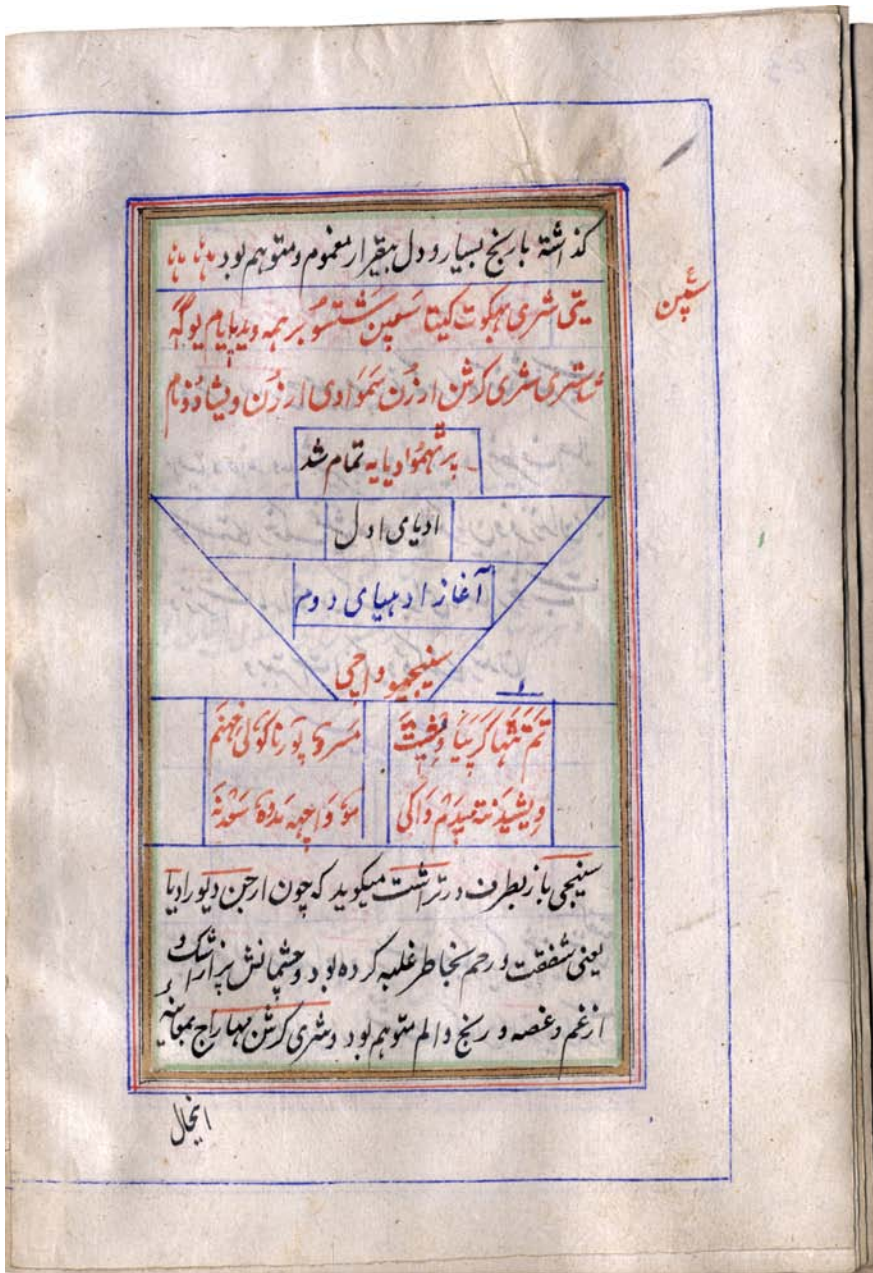 گذاشته با رنج بسیار و دل بیقرار مغموم و متوهم بود
یتی شری بهکوت کیتا سپین شتسو برهمه ویدیایام یوگه
شاستری شری کرشن ارزن سموادی ارزن ویشادو نام
سپین
پرتهمو ادیایه تمام شد
ادیای اول
آغاز ادهیای دوم
سنیجیو واچی
تم تتها کرپیا
ویشیدنت
سنیجی باز بطرف درتراشت میگوید که چون ارجن دیو را دیا
یعنی شفقت و رحم بخاطر غلبه کرده بود و چشمانش پر از اشک و
از غم و غصه و رنج و الم متوهم بود و شری کرشن مهاراج بمعاینه
اینحال